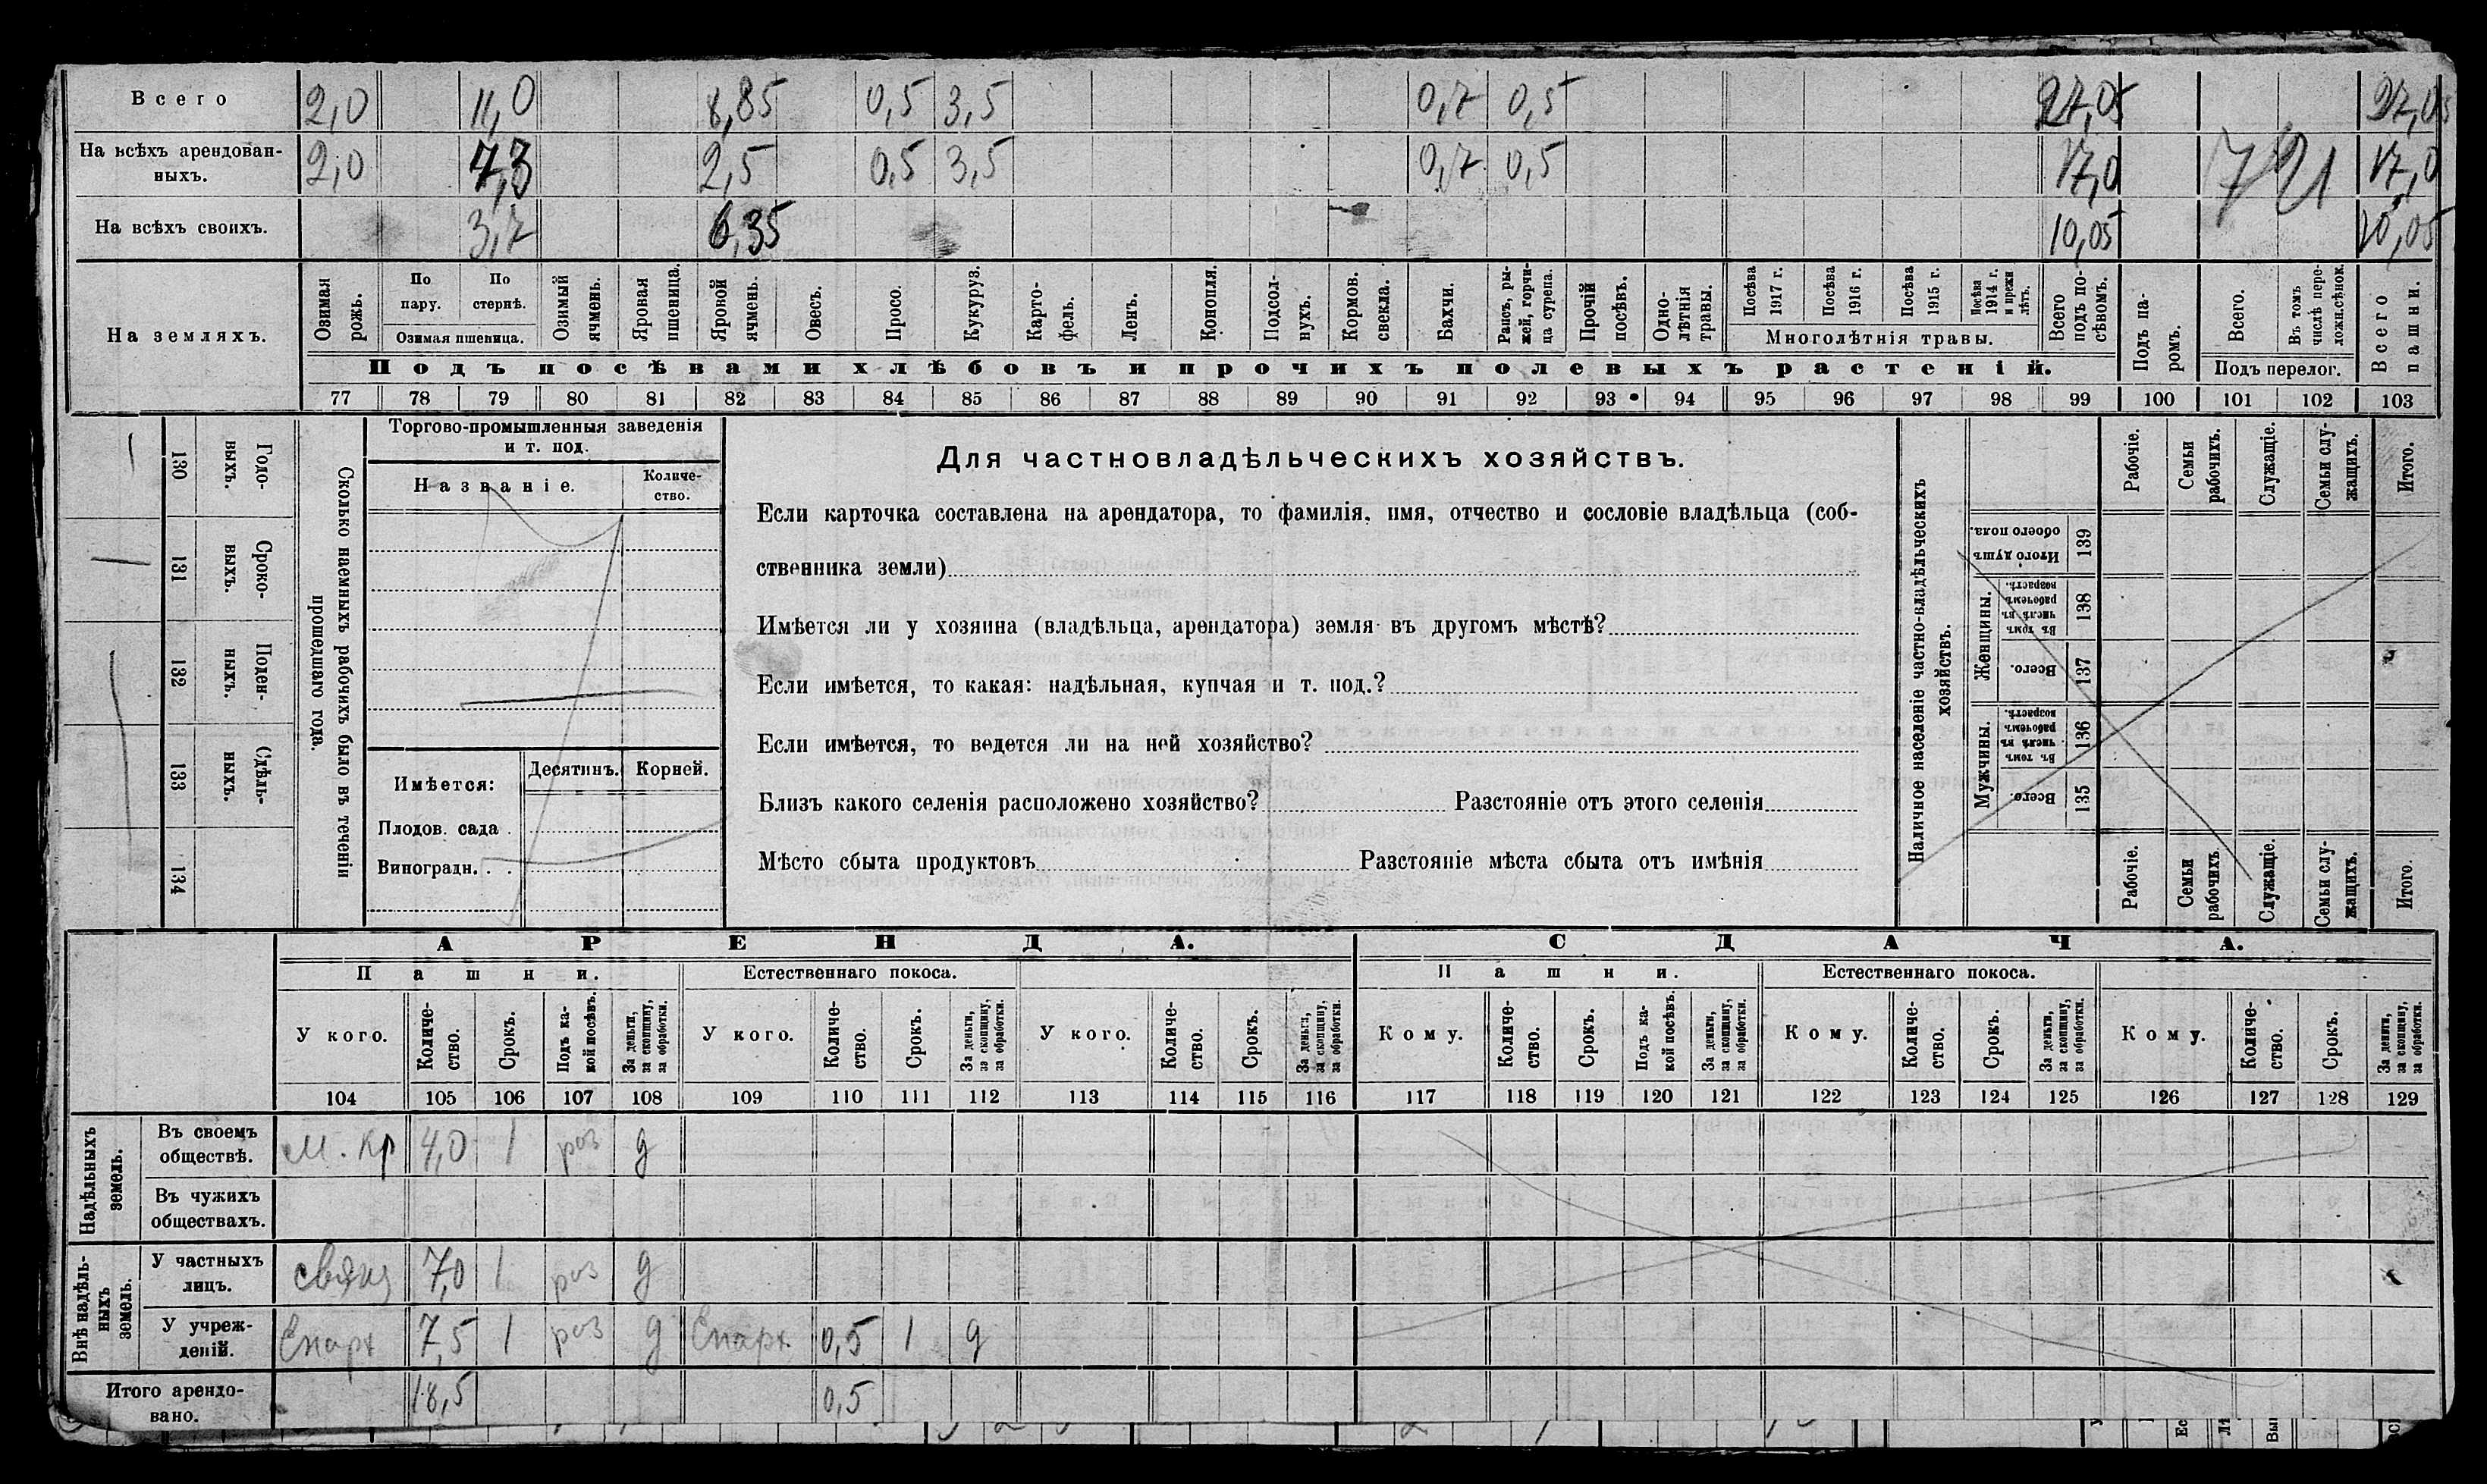 Всего 2,0 11,0 8,85 0,5 3,5 0,7 0,5 27,05 27,05
На всѣхъ арендован-
ныхъ. 2,0 7,3 2,5 0,5 3,5 0,7 0,5 17,0 17,0
На всѣхъ своихъ. 3,7 6,35 10,05 10,05
На земляхъ.
Озимая рожь.
По пару.
По стернѣ.
Озимая пшеница.
Озимый ячмень.
Яровая пшеница.
Яровой ячмень.
Овесъ.
Просо.
Кукуруз.
Карто-
фель.
Ленъ.
Конопля.
Подсол-
нухъ.
Кормов. свекла.
Бахчи.
Рапсъ, ры-
жей, горчи-
ца сурепа.
Прочій посѣвъ.
Одно-
лѣтнія травы.
Посѣва 1917 г.
Посѣва 1916 г.
Посѣва 1915 г.
Посѣва 1914 г. и прежн лѣтъ.
Многолѣтнія травы.
Всего подъ по-
сѣвомъ.
Подъ па-
ромъ.
Всего.
Въ томъ числѣ пере-
ложн.сѣнок.
Подъ перелог.
Всего пашни.
Подъ посѣвами хлѣбовъ и прочихъ полевыхъ растеній.
77 78 79 80 81 82 83 84 85 86 87 88 89 90 91 92 93 94 95 96 97 98 99 100 101 102 103
Сколько наемныхъ рабочихъ было въ теченіи
прошедшаго года.
Годо-
выхъ.
130
Сроко-
выхъ.
131
Поден-
ныхъ.
132
Сдѣль-
ныхъ.
133
134
Торгово-промышленныя заведенія
и т. под.
Названіе.
Количе-
ство.
Имѣется:
Десятинъ.
Корней.
Плодов. сада .
Виноградн. . .
Для частновладѣльческихъ хозяйствъ.
Если карточка составлена на арендатора, то фамилія, имя, отчество и сословіе владѣльца (соб-
ственника земли)
Имѣется ли у хозяина (владѣльца, арендатора) земля въ другомъ мѣстѣ?
Если имѣется, то какая: надѣльная, купчая и т. под.?
Если имѣется, то ведется ли на ней хозяйство?
Близъ какого селенія расположено хозяйство? Разстояніе отъ этого селенія
Мѣсто сбыта продуктовъ Разстояніе мѣста сбыта отъ имѣнія
Наличное населеніе частно-владѣльческихъ
хозяйствъ.
Рабочіе.
Семьи рабочихъ.
Служащіе.
Семьи слу-
жащихъ.
Итого.
Итого душъ обоего пола.
139
Женщины.
Въ томъ числѣ въ рабочемъ возрастѣ.
138
Всего.
137
Мужчины.
Въ томъ числѣ въ рабочемъ возрастѣ.
136
Всего.
135
Рабочіе.
Семьи рабочихъ.
Служащіе.
Семьи слу-
жащихъ.
Итого.
АРЕНДА. СДАЧА.
Пашни. Естественнаго покоса. Пашни. Естественнаго покоса.
У кого.
Количе-
ство.
Срокъ.
Подъ ка-
кой посѣвъ.
За деньги, за скопщину, за обработки.
У кого.
Количе-
ство.
Срокъ.
За деньги, за скопщину, за обработки.
У кого.
Количе-
ство.
Срокъ.
За деньги, за скопщину, за обработки.
Кому.
Количе-
ство.
Срокъ.
Подъ ка-
кой посѣвъ.
За деньги, за скопщину, за обработки.
Кому.
Количе-
ство.
Срокъ.
За деньги, за скопщину, за обработки.
Кому.
Количе-
ство.
Срокъ.
За деньги, за скопщину, за обработки.
104 105 106 107 108 109 110 111 112 113 114 115 116 117 118 119 120 121 122 123 124 125 126 127 128 129
Надѣльныхъ земель.
Въ своемъ
обществѣ. м. кр 4,0 1 роз д
Въ чужихъ
обществахъ.
Внѣ надѣль-
ныхъ земель.
У частныхъ
лицъ. свящ 7,0 1 роз д
У учреж-
деній. Епарх 7,5 1 роз д Епарх. 0,5 1 д
Итого арендо-
вано. 18,5 0,5